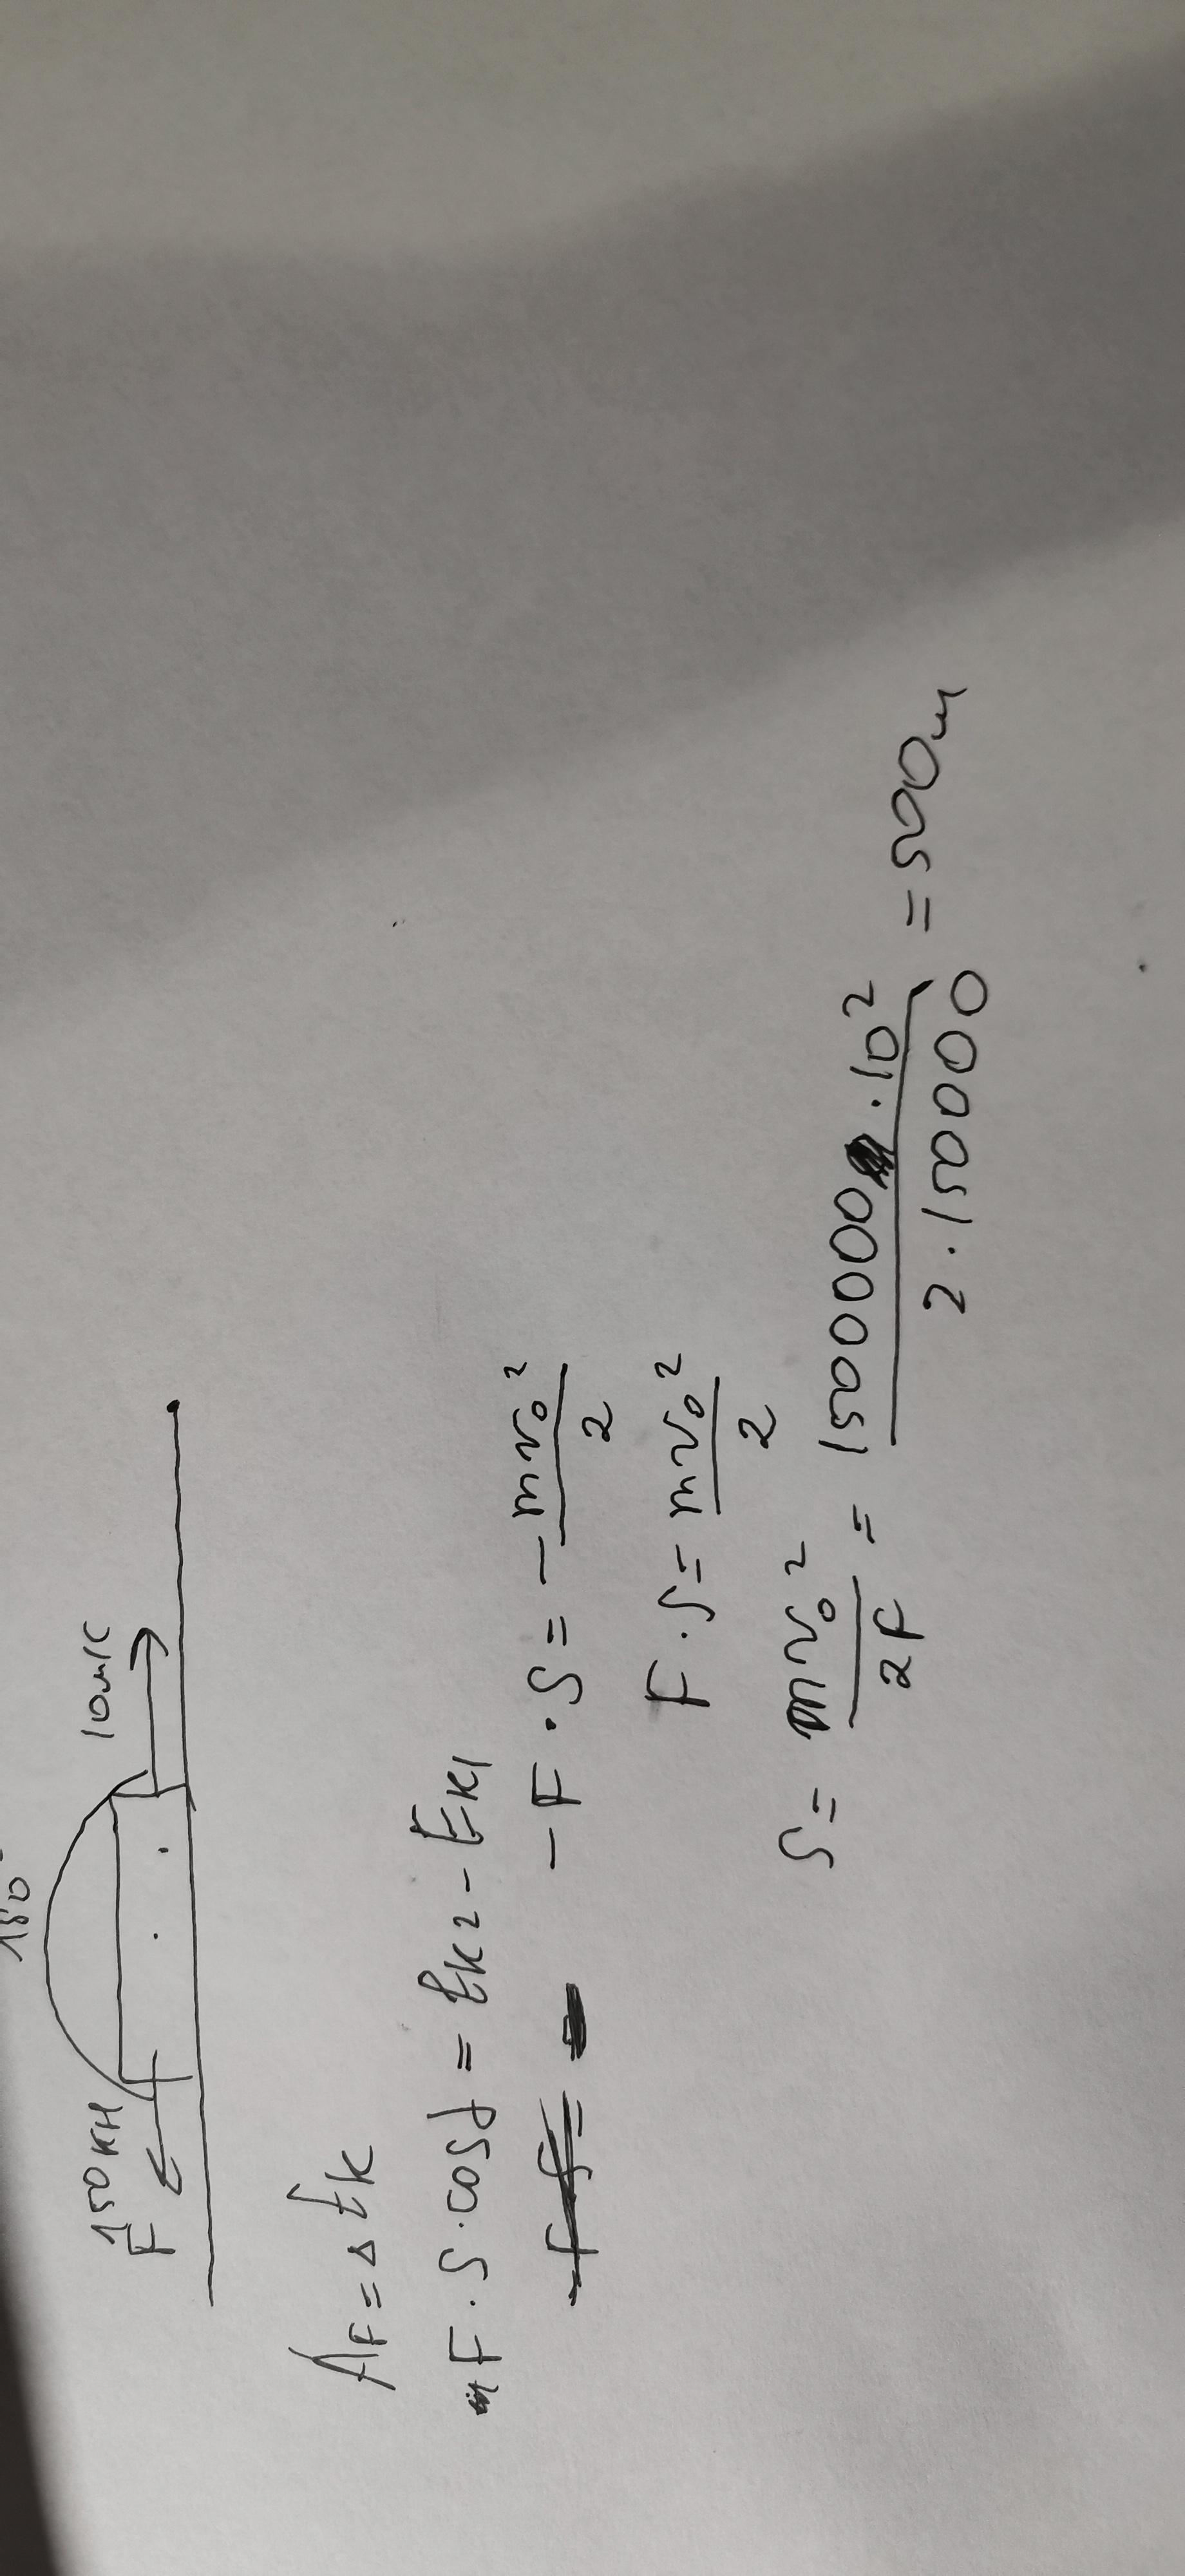 180°
F 150 кН 10 м/с
A_F = Δ E_k
F · S · cos α = E_k2 - E_k1
- F · S = - mv₀² / 2
F · S = mv₀² / 2
S = mv₀² / 2F = 1500000 · 10² / 2 · 150000 = 500 м